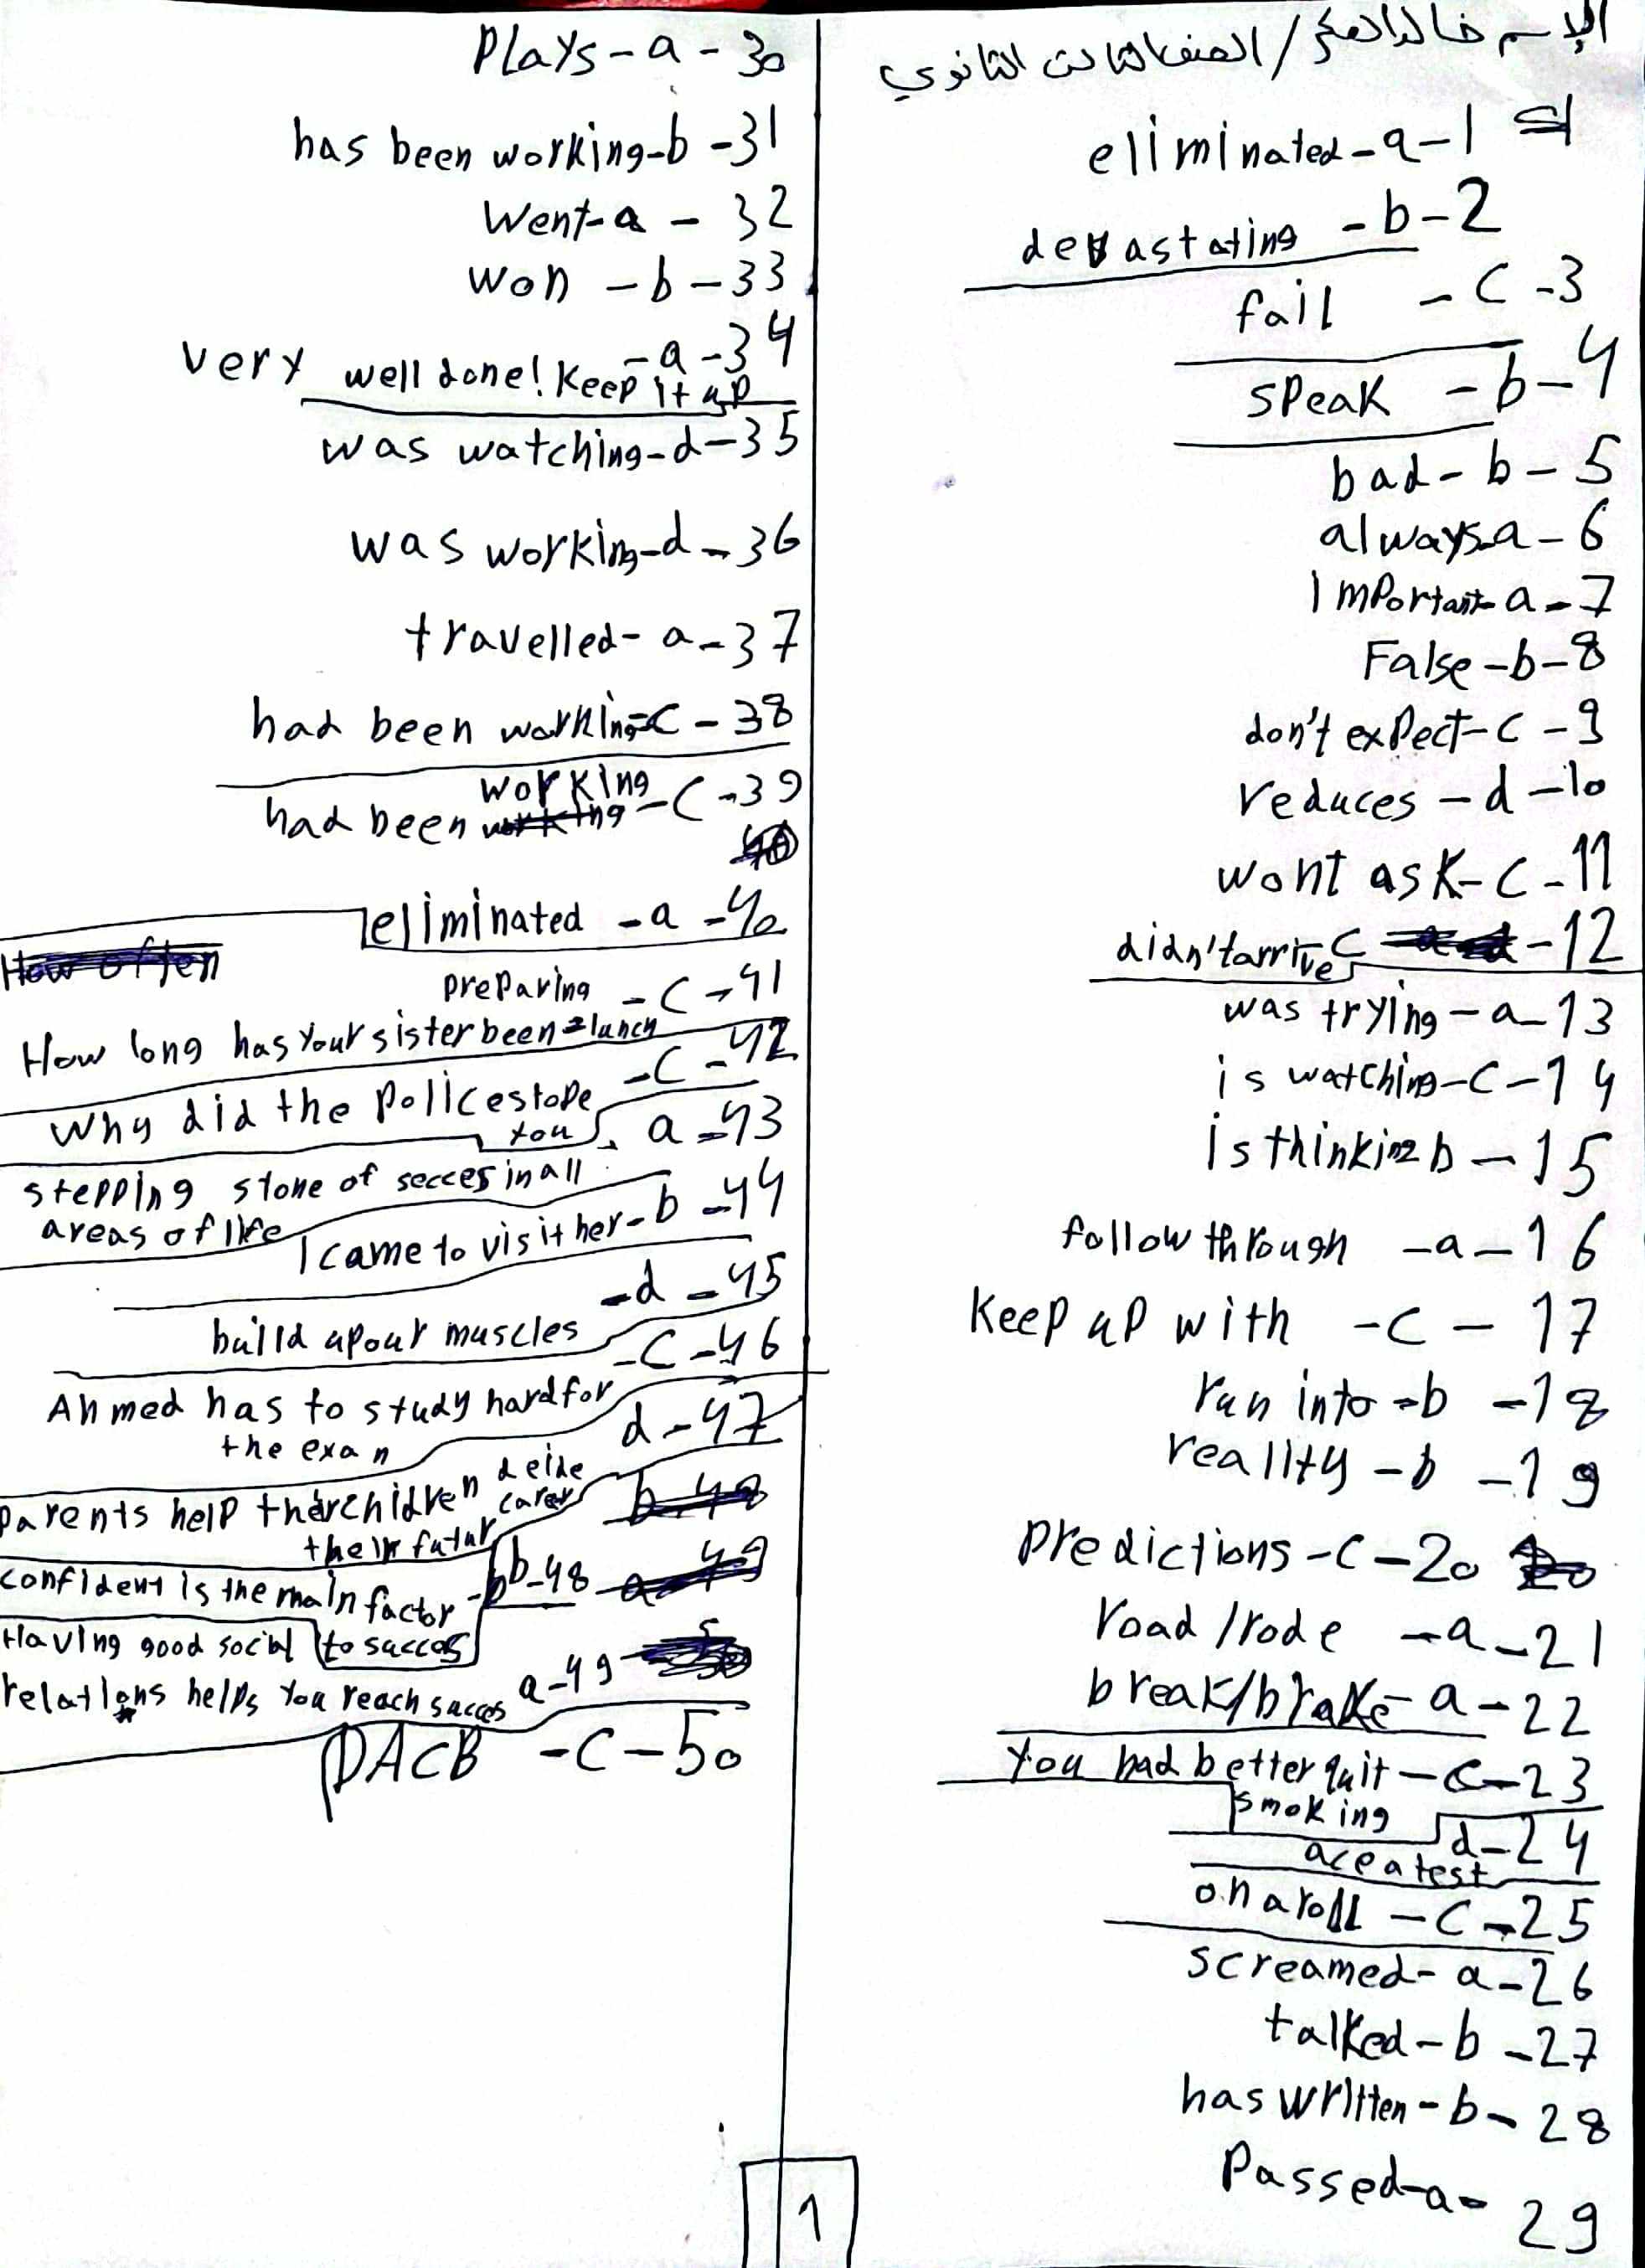 الإسم خالد / الصف الثالث الثانوي
eliminated - a - 1
devastating - b - 2
fail - c - 3
speak - b - 4
bad - b - 5
always - a - 6
Important - a - 7
False - b - 8
don't expect - c - 9
reduces - d - 10
wont ask - c - 11
didn't arrive c - 12
was trying - a - 13
is watching - c - 14
is thinking b - 15
follow through - a - 16
Keep up with - c - 17
run into - b - 18
reality - b - 19
predictions - c - 20
road / rode - a - 21
break / brake - a - 22
you had better quit - c - 23
smoking
d - 24
ace a test
on a roll - c - 25
screamed - a - 26
talked - b - 27
has written - b - 28
Passed - a - 29
Plays - a - 30
has been working - b - 31
Went - a - 32
won - b - 33
- a - 34
very well done! Keep it up
was watching - d - 35
was working - d - 36
travelled - a - 37
had been working - c - 38
had been working - c - 39
eliminated - a - 40
How often
preparing - c - 41
How long has your sister been lunch
- c - 42
Why did the police stope
you
a - 43
stepping stone of secces in all
areas of life
b - 44
I came to visit her
- d - 45
build up our muscles
- c - 46
Ahmed has to study hard for
the exan
d - 47
Parents help their chidren deide
their futur carer
b - 48
confident is the main factor
to succes
a - 49
Having good social
relations helps you reach succes
DACB - c - 50
1